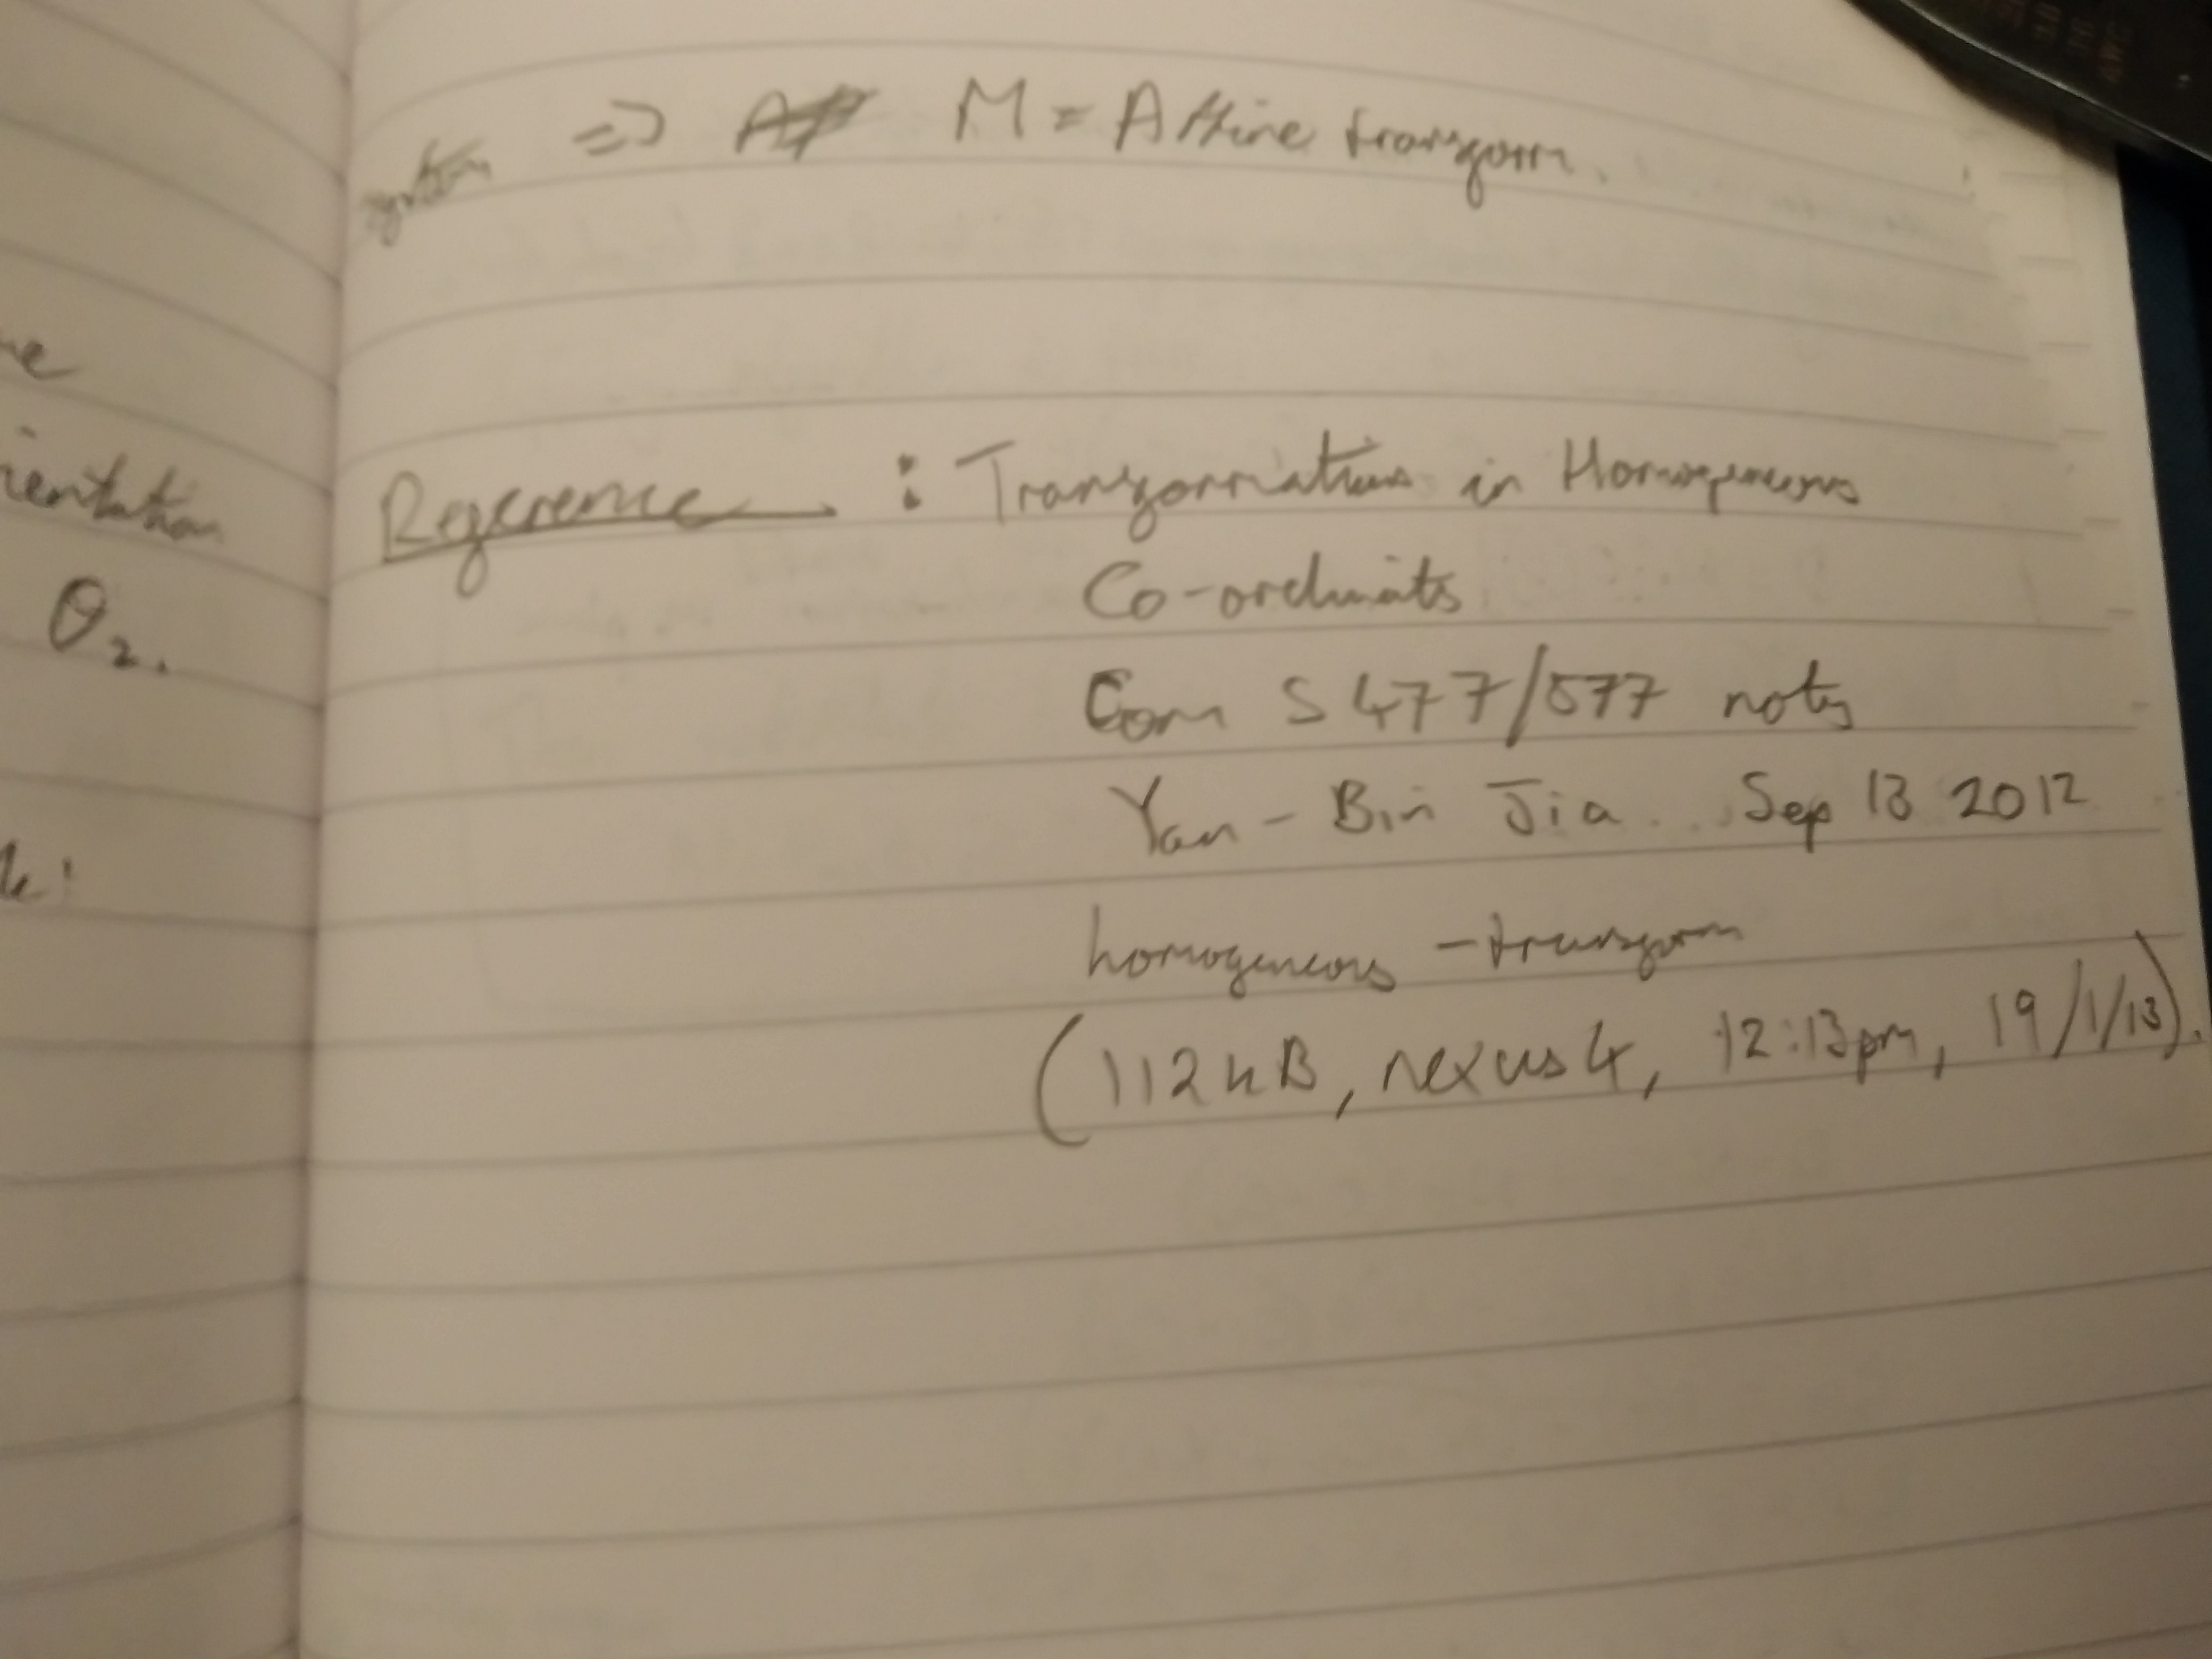 ne
ientation
θ₂.
⇒ M = Affine transform.
Reference : Transformations in Homogeneous
Co-ordinates
Com S 477/577 notes
Yan-Bin Jia Sep 13 2012
homogeneous-transform
(112kB, nexus 4, 12:13pm, 19/1/13).